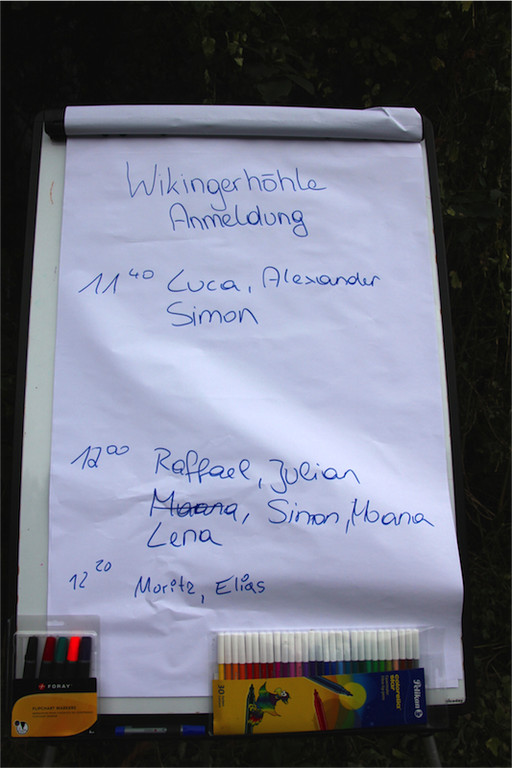 Wikingerhöhle
Anmeldung
11⁴⁰ Luca, Alexander
Simon
12⁰⁰ Raffael, Julian
Moana, Simon, Moana
Lena
12²⁰ Moritz, Elias
FORAY
FLIPCHART MARKERS
colorella
star
Pelikan